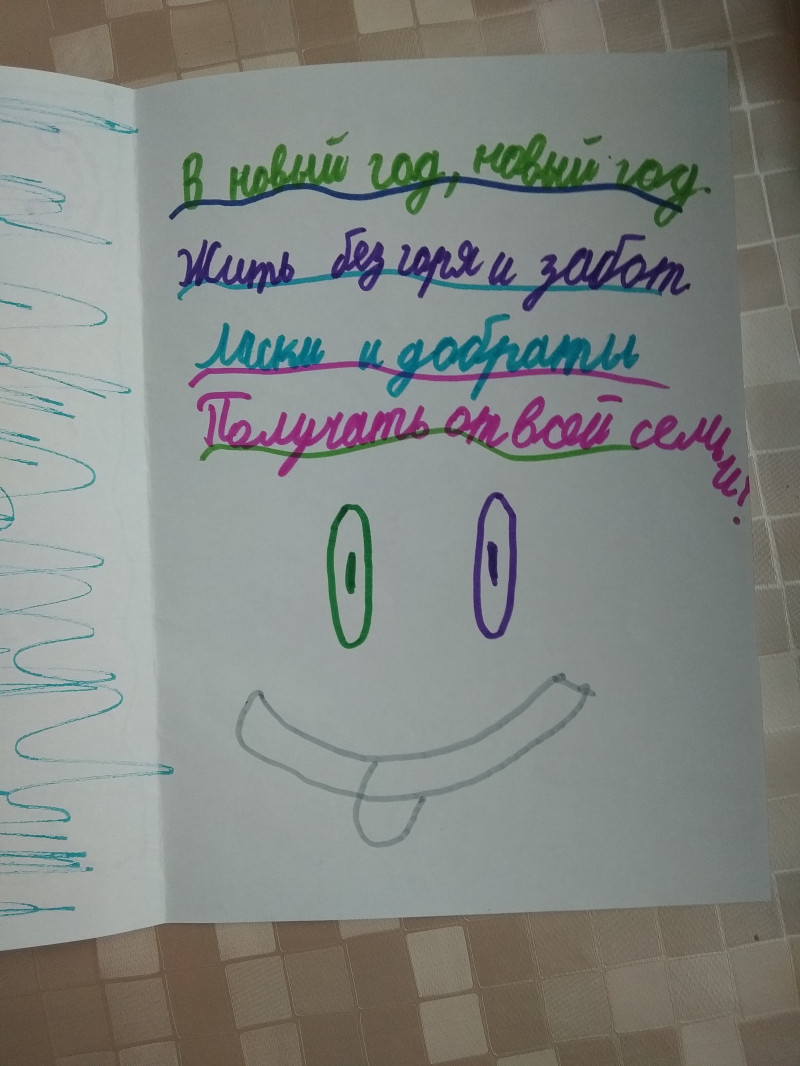 В новый год, новый год.
Жить без горя и забот
Ласки и добраты
Получать от всей семьи!